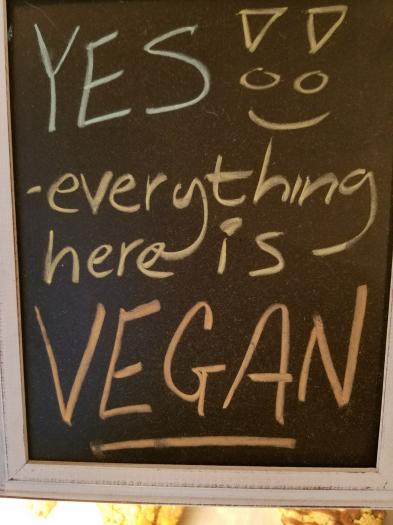 YES
-everything
here is
VEGAN